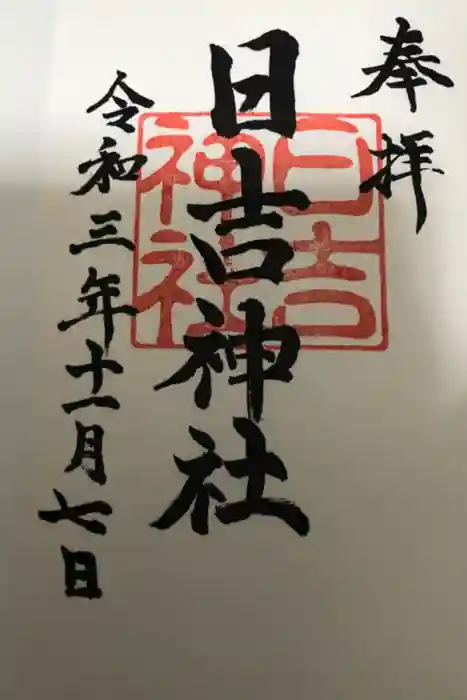 奉拝
日吉神社
日吉
神社
令和三年十一月七日